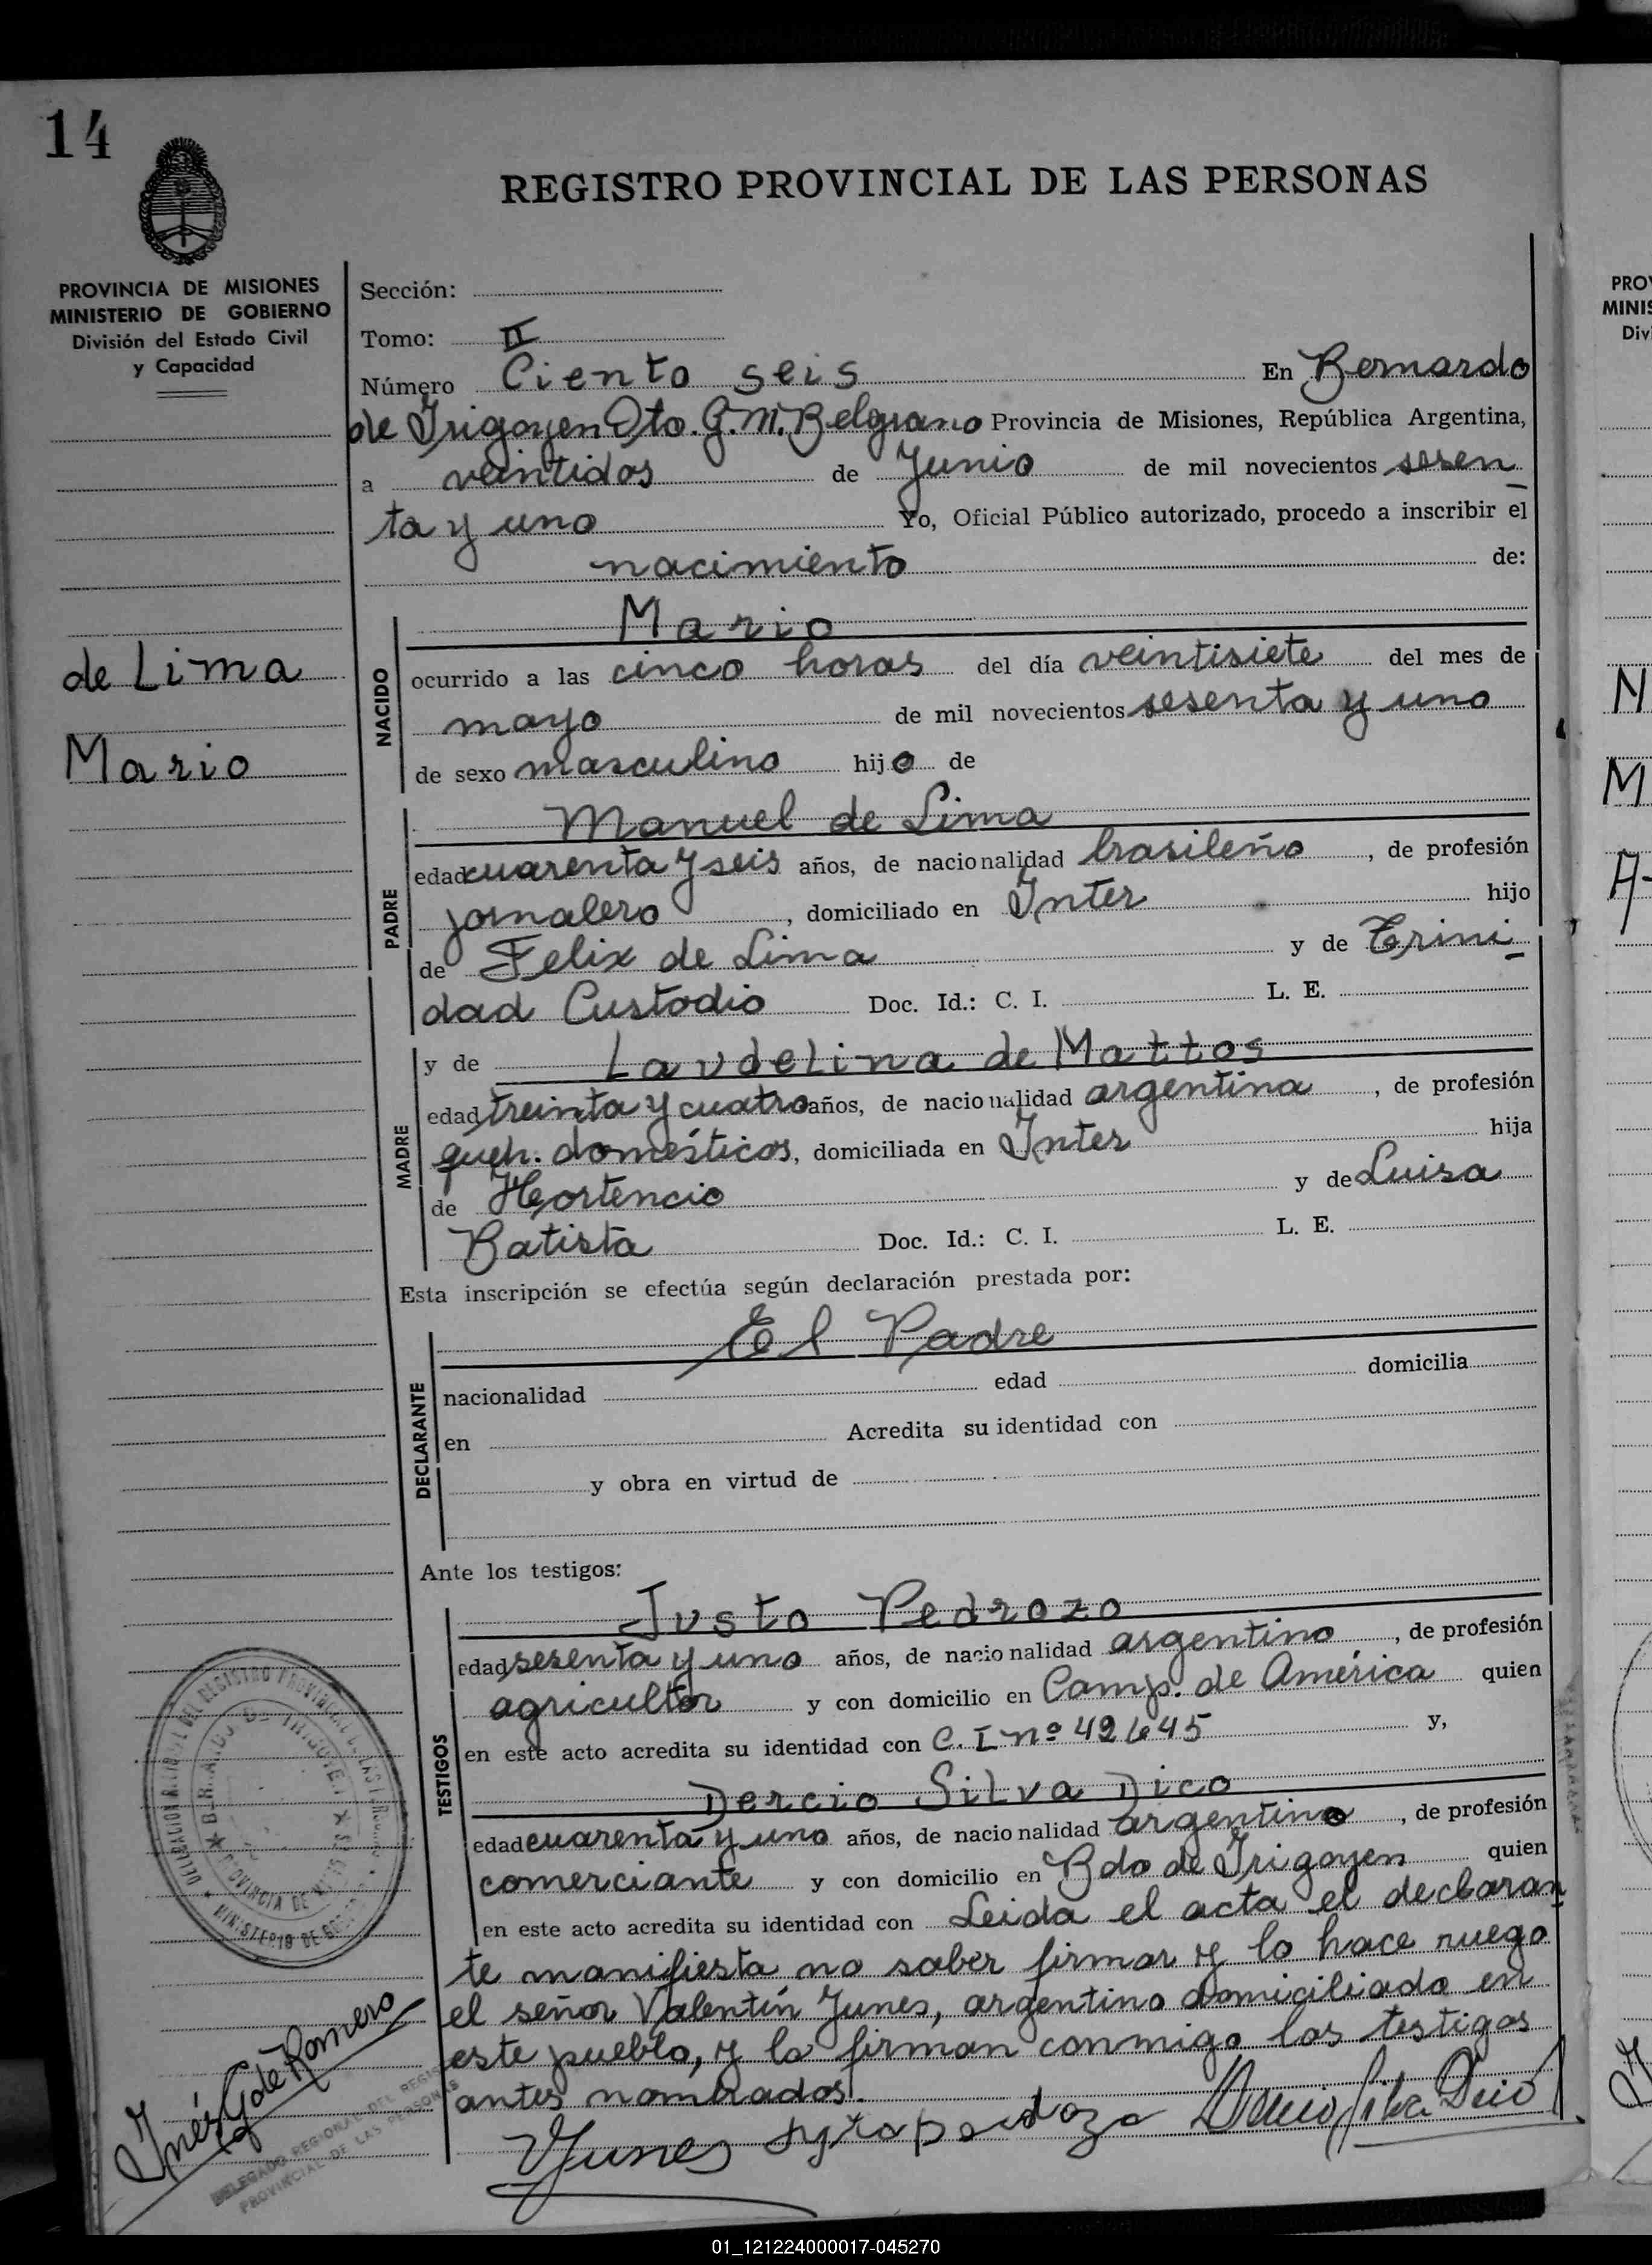 14
REGISTRO PROVINCIAL DE LAS PERSONAS
PROVINCIA DE MISIONES
MINISTERIO DE GOBIERNO
División del Estado Civil
y Capacidad
Sección:
Tomo: II
Número Ciento seis En Bernardo
de Irigoyen Dto. G. M. Belgrano Provincia de Misiones, República Argentina,
a veintidos de Junio de mil novecientos sesen
ta y uno Yo, Oficial Público autorizado, procedo a inscribir el
nacimiento de:
de Lima
Mario
NACIDO
Mario
ocurrido a las cinco horas del día veintisiete del mes de
mayo de mil novecientos sesenta y uno
de sexo masculino hijo de
PADRE
Manuel de Lima
edad cuarenta y seis años, de nacionalidad brasileño, de profesión
jornalero, domiciliado en Inter hijo
de Felix de Lima y de Trini
dad Custodio Doc. Id.: C. I. L. E.
MADRE
y de Laudelina de Mattos
edad treinta y cuatro años, de nacionalidad argentina, de profesión
queh. domésticos, domiciliada en Inter hija
de Hortencio y de Luisa
Batista Doc. Id.: C. I. L. E.
Esta inscripción se efectúa según declaración prestada por:
DECLARANTE
El Padre
nacionalidad edad domicilia
en Acredita su identidad con
y obra en virtud de
Ante los testigos:
TESTIGOS
Justo Pedrozo
edad sesenta y uno años, de nacionalidad argentino, de profesión
agricultor y con domicilio en Camp. de América quien
en este acto acredita su identidad con C. I nº 42645 y,
Dercio Silva Dico
edad cuarenta y uno años, de nacionalidad argentino, de profesión
comerciante y con domicilio en Bdo de Irigoyen quien
en este acto acredita su identidad con Leida el acta el declaran
te manifiesta no saber firmar y lo hace ruego
el señor Valentín Yunes, argentino domiciliado en
este pueblo, y lo firman conmigo los testigos
antes nombrados.
Yunes
Inés G de Romero
DELEGADO REGIONAL DEL REGIS
PROVINCIAL DE LAS PERSONAS
PROV
MINIS
Div
01_121224000017-045270